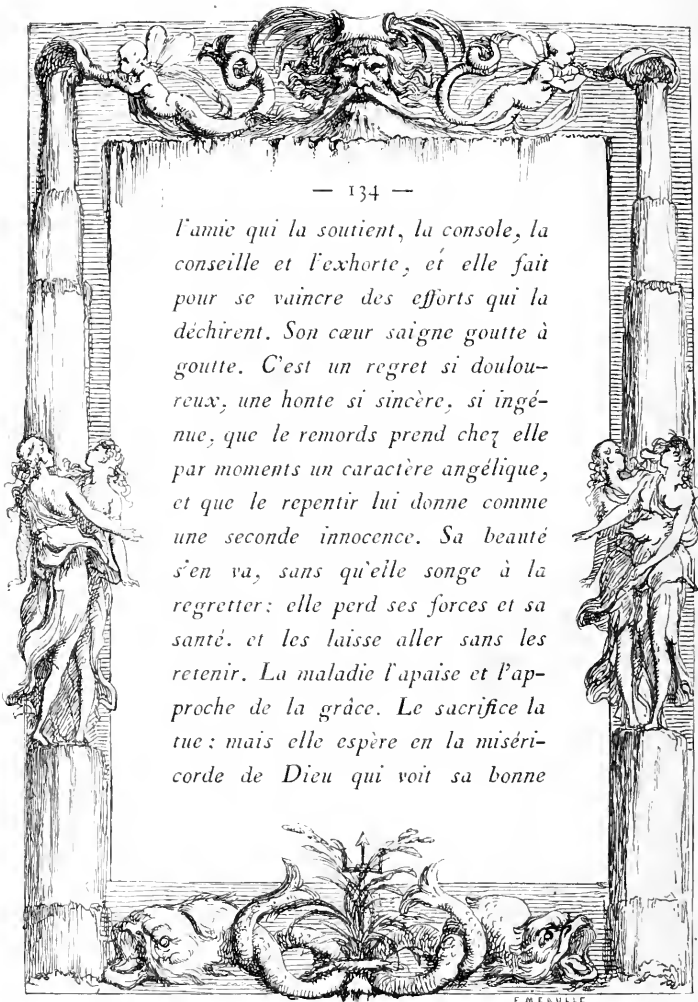 — 134 —
l'amie qui la soutient, la console, la
conseille et l'exhorte, et elle fait
pour se vaincre des efforts qui la
déchirent. Son cœur saigne goutte à
goutte. C'est un regret si doulou-
reux, une honte si sincère, si ingé-
nue, que le remords prend chez elle
par moments un caractère angélique,
et que le repentir lui donne comme
une seconde innocence. Sa beauté
s'en va, sans qu'elle songe à la
regretter: elle perd ses forces et sa
santé. et les laisse aller sans les
retenir. La maladie l'apaise et l'ap-
proche de la grâce. Le sacrifice la
tue: mais elle espère en la miséri-
corde de Dieu qui voit sa bonne